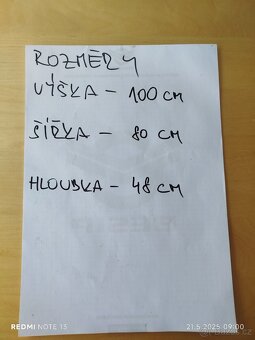 ROZMĚRY
VÝŠKA - 100 CM
ŠÍŘKA - 80 CM
HLOUBKA - 48 CM
REDMI NOTE 13
21.5.2025 09:00